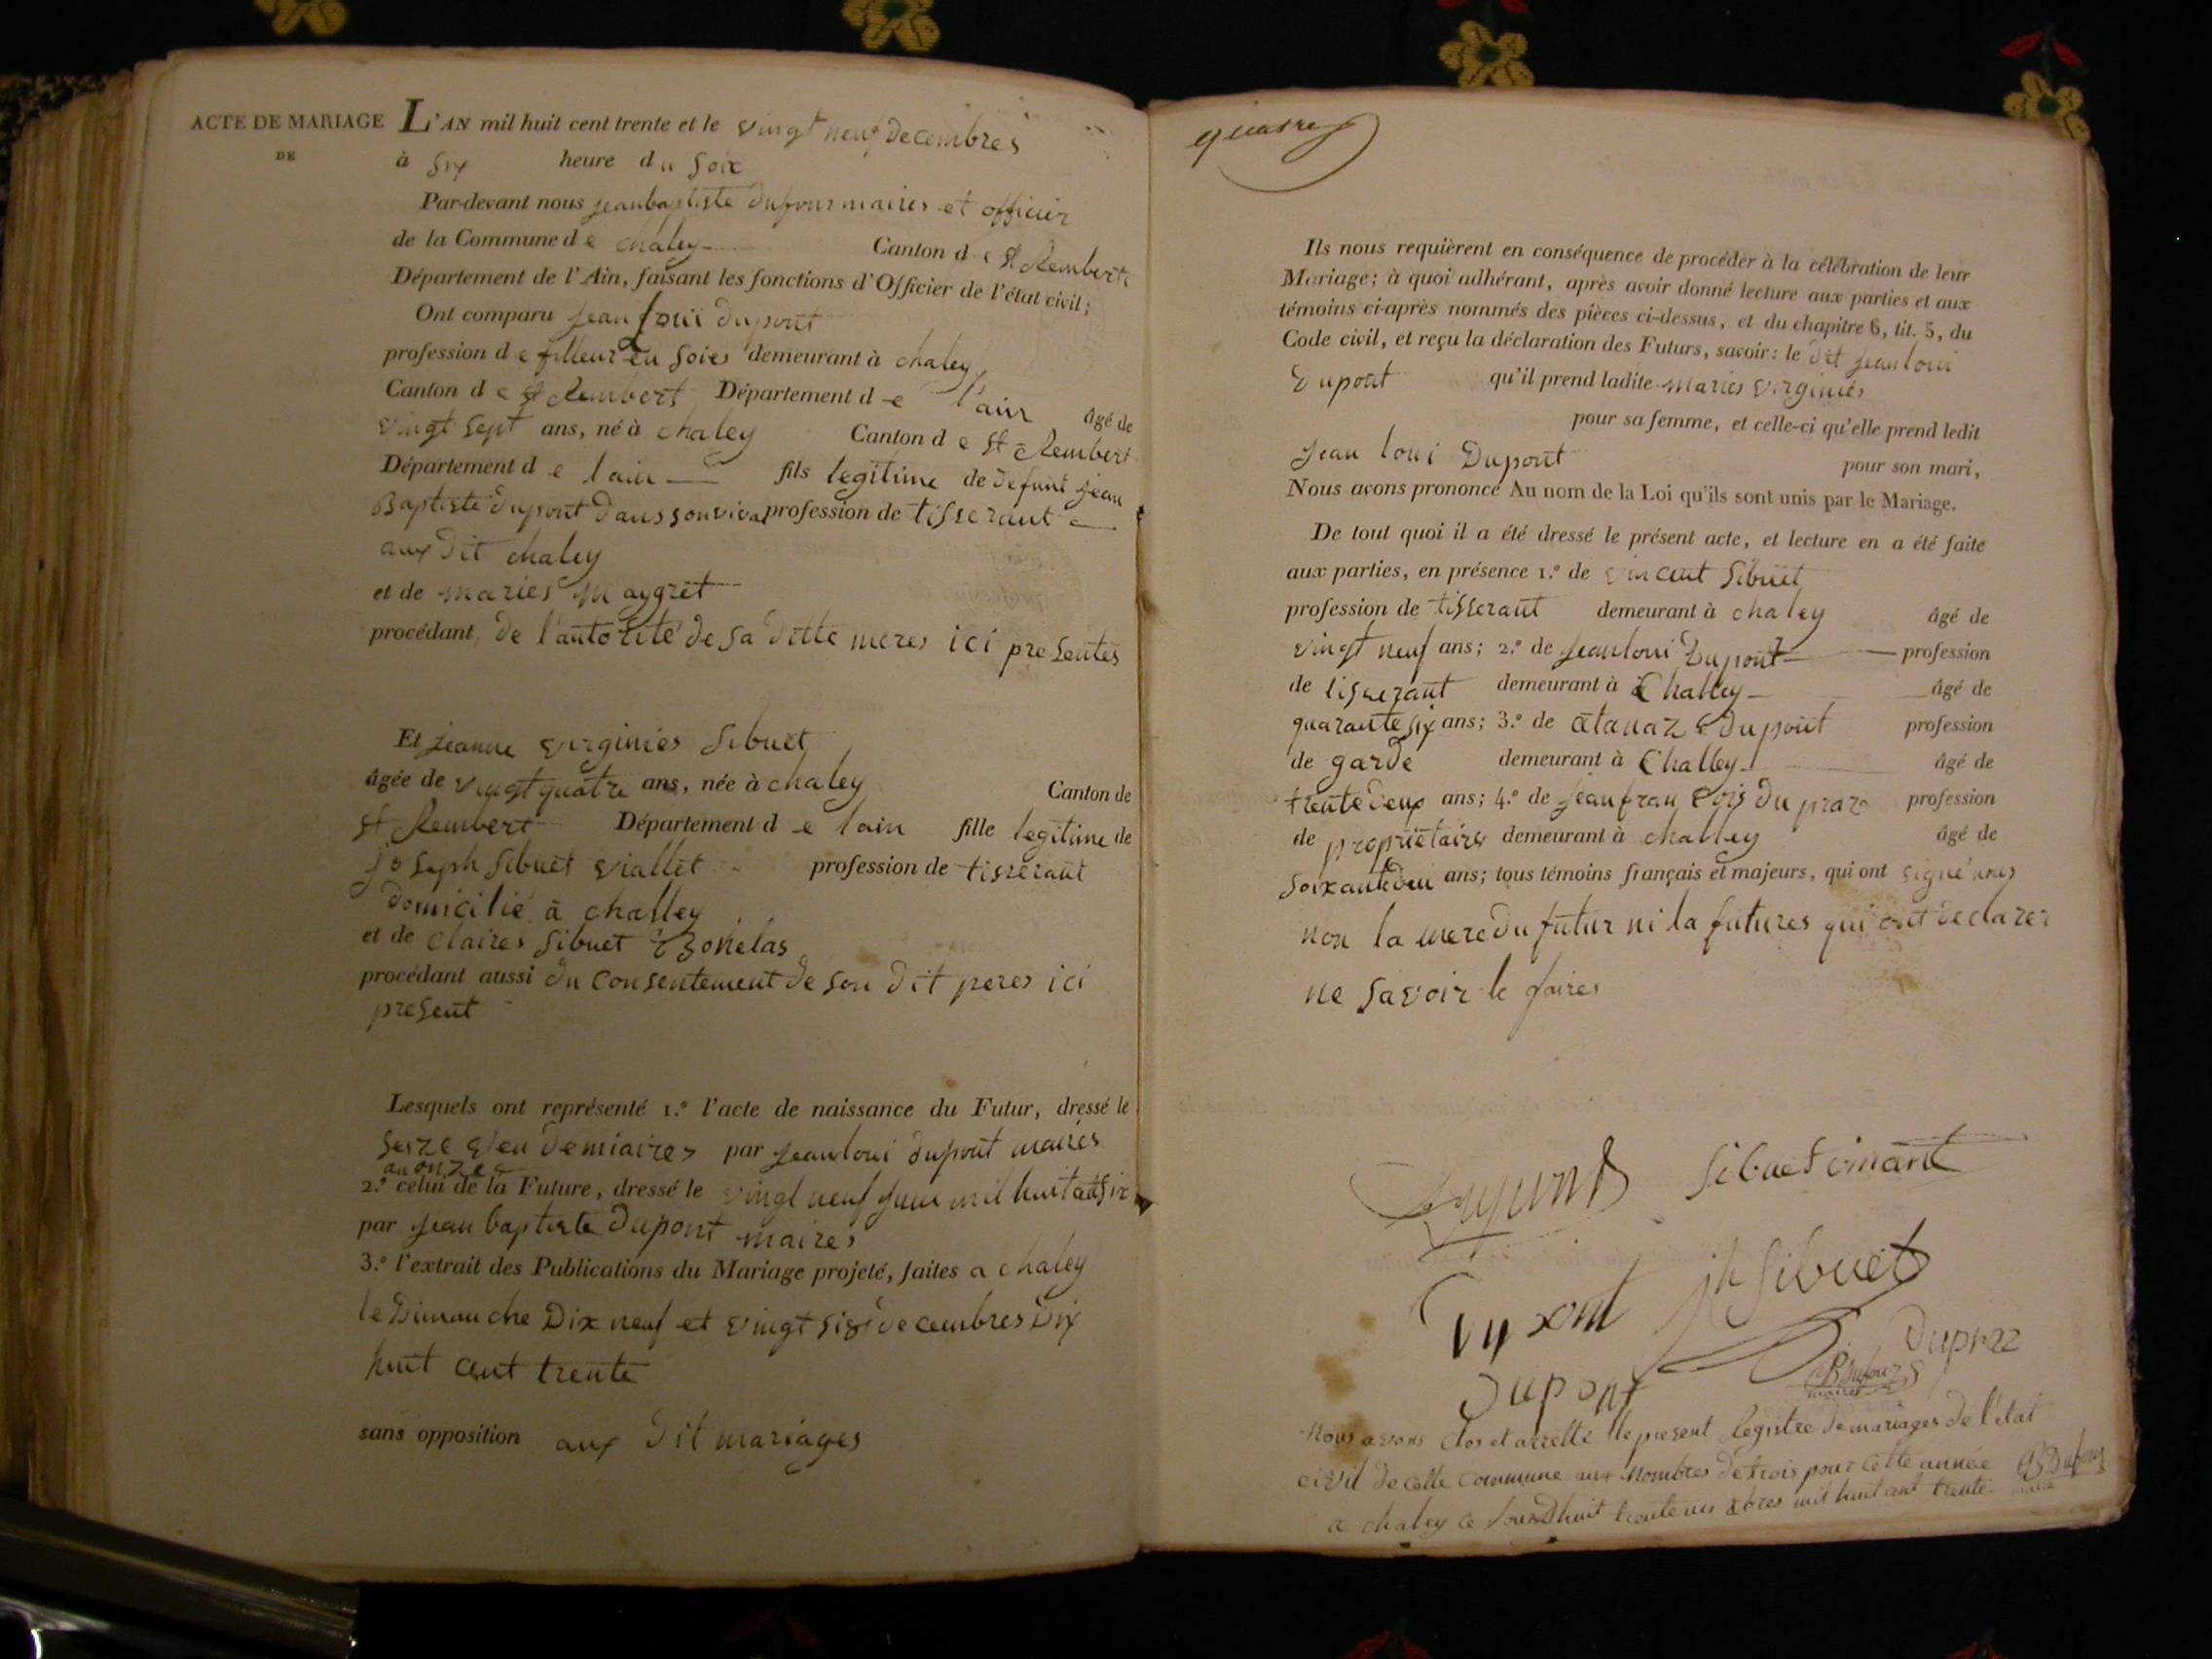 ACTE DE MARIAGE
DE
L'AN mil huit cent trente et le vingt neuf decembres
à six heure du soir
Par-devant nous jeanbaptiste dufour maires et officier
de la Commune de chaley Canton de St Rembert
Département de l'Ain, faisant les fonctions d'Officier de l'état civil;
Ont comparu jean loui dupont
profession de filleur en soies demeurant à chaley
Canton de St Rembert Département de l'ain âgé de
vingt sept ans, né à chaley Canton de St Rembert
Département de lain fils legitime de defunt jean
Baptiste dupont dans son viva profession de tisserant
aux dit chaley
et de maries maygret
procédant de l'autorité de sa ditte meres ici presentes
Et jeanne virginies Sibuet
âgée de vingt quatre ans, née à chaley Canton de
St Rembert Département de lain fille legitime de
joseph Sibuet viallet profession de tisserant
domicilié à challey
et de claires Sibuet
procédant aussi du consentement de son dit peres ici
present
Lesquels ont représenté 1.º l'acte de naissance du Futur, dressé le
seize par jean loui dupont maires
an onze
2.º celui de la Future, dressé le vingt neuf mil huit six
par jean baptiste Dupont maires
3.º l'extrait des Publications du Mariage projeté, faites a chaley
le Dimanche Dix neuf et vingt six decembres Dix
huit cent trente
sans opposition aux dit mariages
quatre
Ils nous requièrent en conséquence de procéder à la célébration de leur
Mariage; à quoi adhérant, après avoir donné lecture aux parties et aux
témoins ci-après nommés des pièces ci-dessus, et du chapitre 6, tit. 5, du
Code civil, et reçu la déclaration des Futurs, savoir: le dit jean loui
Dupont qu'il prend ladite maries virginies
pour sa femme, et celle-ci qu'elle prend ledit
jean loui Dupont pour son mari,
Nous avons prononcé Au nom de la Loi qu'ils sont unis par le Mariage.
De tout quoi il a été dressé le présent acte, et lecture en a été faite
aux parties, en présence 1.º de vincent Sibuet
profession de tisserant demeurant à chaley âgé de
vingt neuf ans; 2.º de jean loui Dupont profession
de tisserant demeurant à Challey âgé de
quarante six ans; 3.º de atanaz Dupont profession
de garde demeurant à Challey âgé de
trente deux ans; 4.º de jean françois Dupraz profession
de proprietaires demeurant à challey âgé de
soixante deu ans; tous témoins français et majeurs, qui ont signé
non la mere du futur ni la futures qui ont declarer
ne savoir le faires
Dupont Sibuet
Dupont jh Sibuet
Dupont Dupraz
Dufour
maire
Nous avons clos et arretté le present Registre de mariages de l'etat
civil de cette commune aux nombres de trois pour cette année Dufour
a chaley ce jourdhuit trente un xbres mil huit cent trente maire